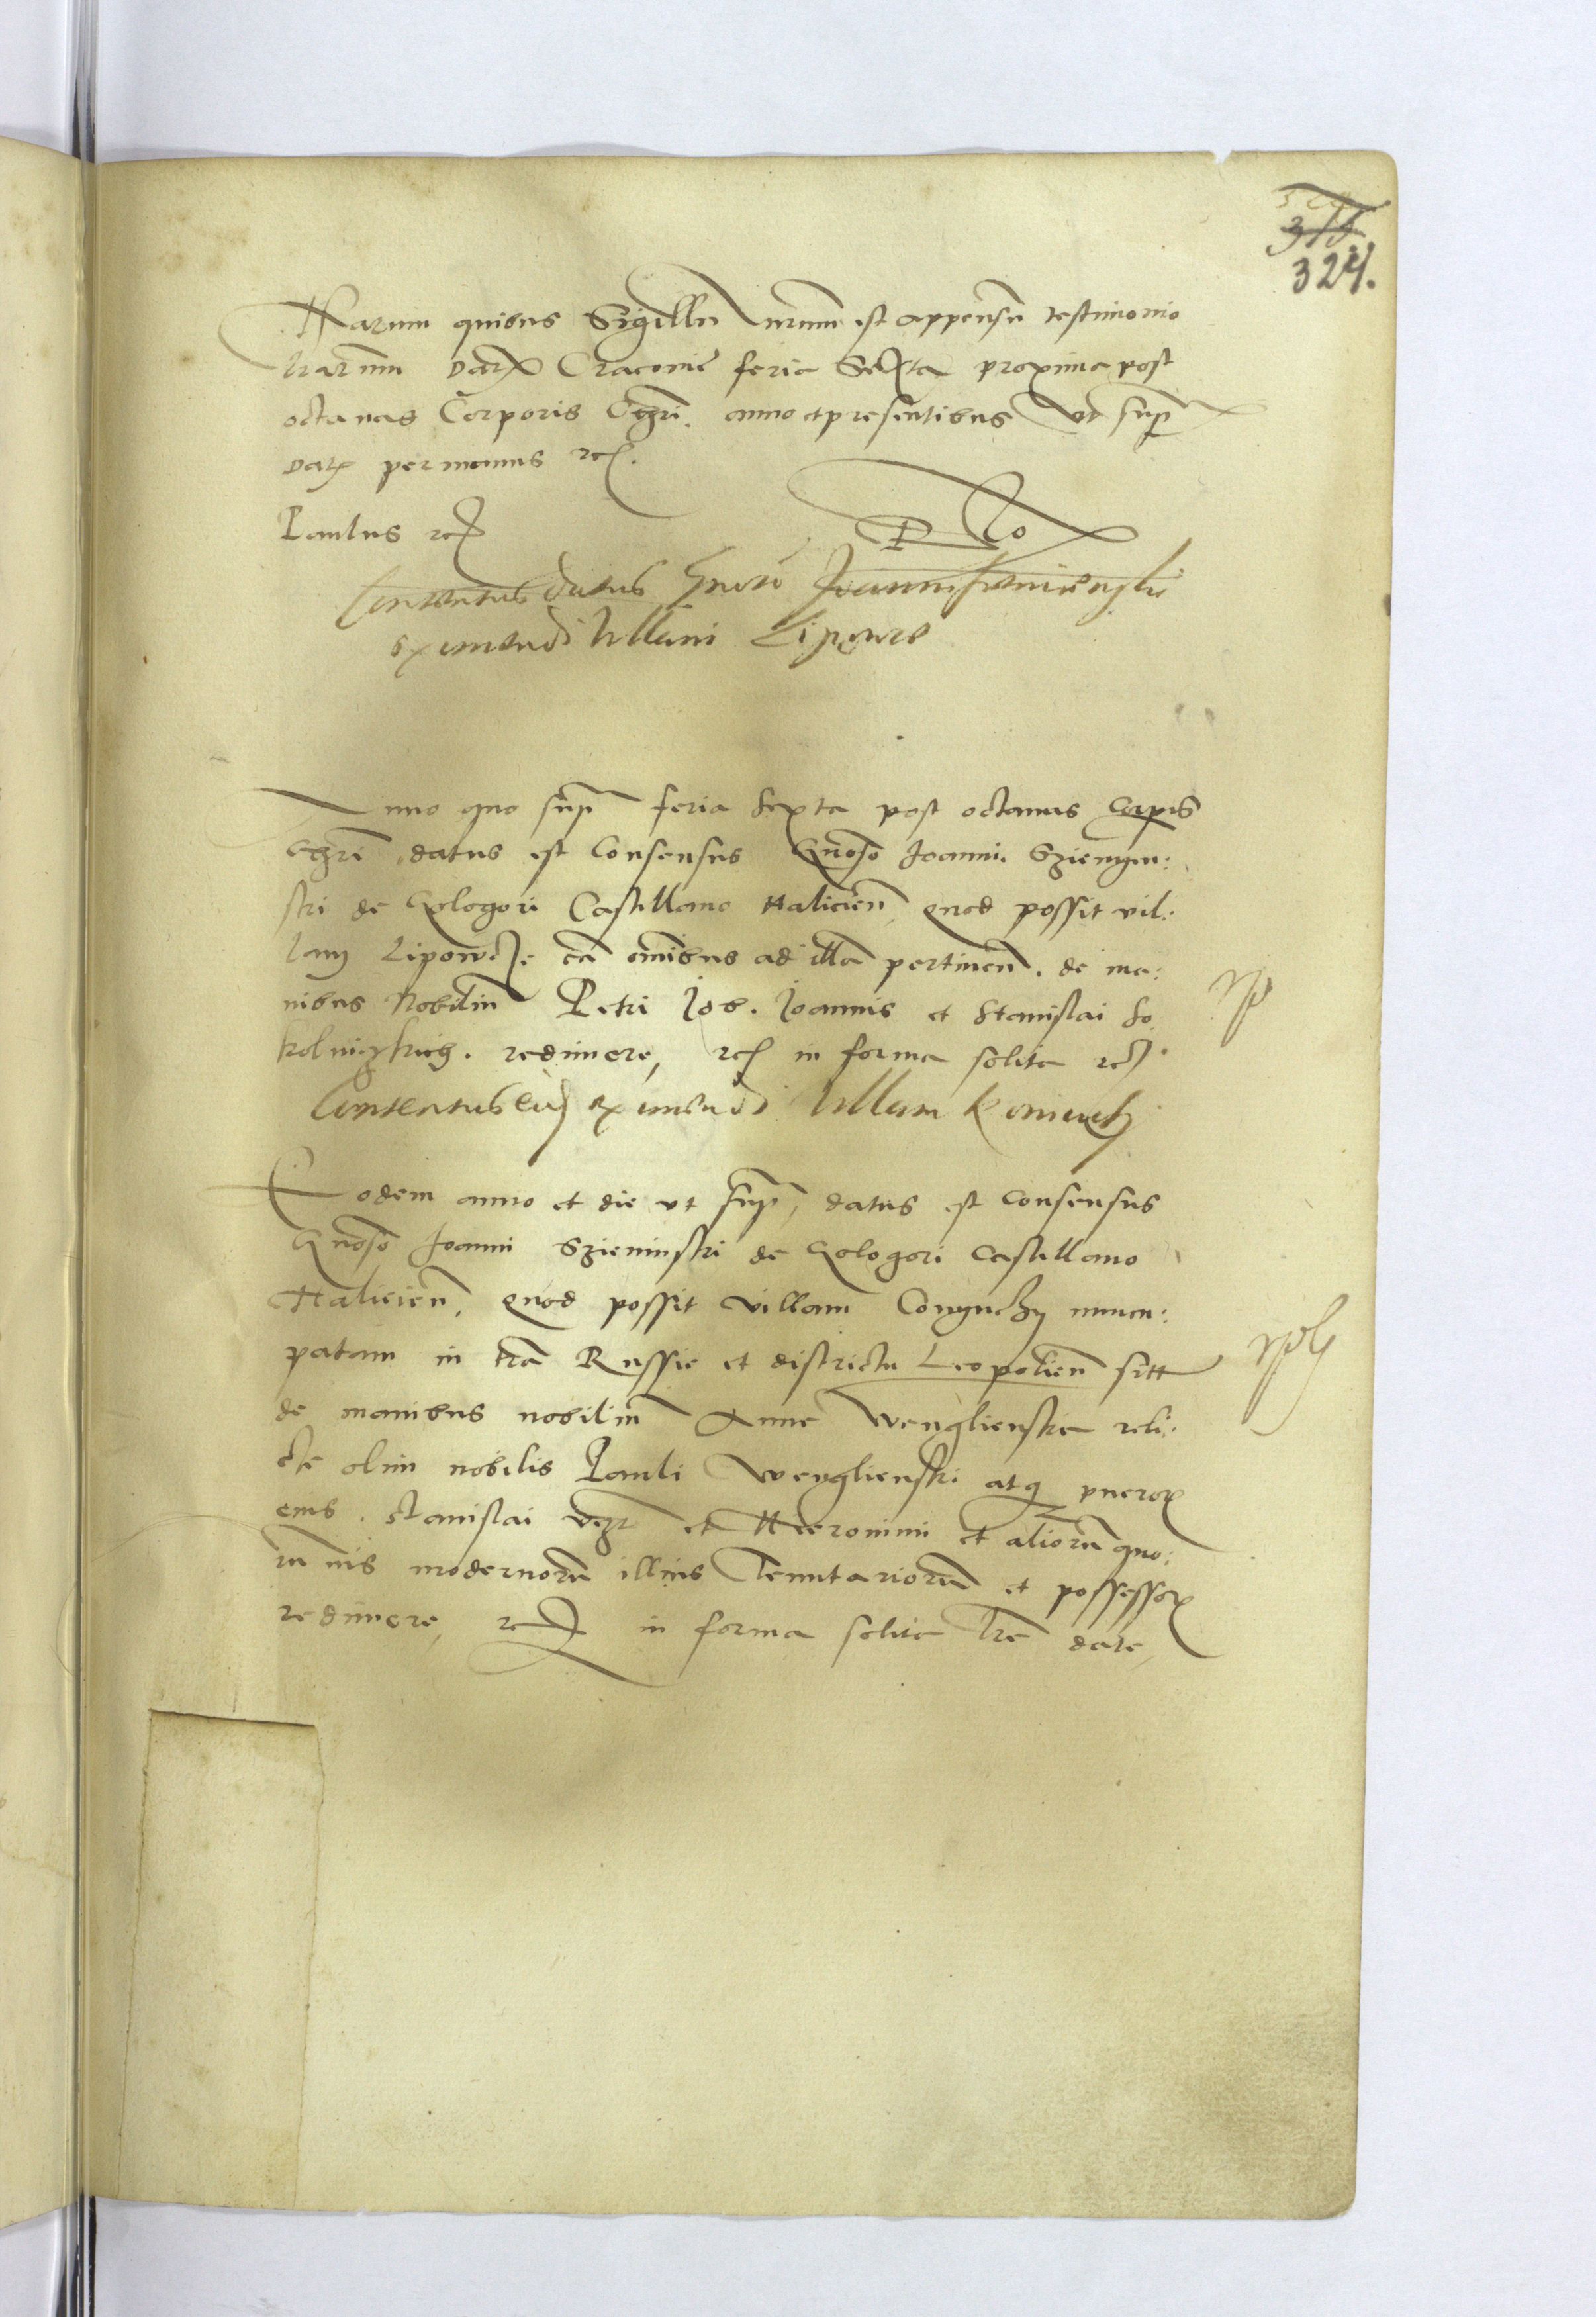 324.
Harum quibus Sigillu nrum est appensu testimonio
trarum Dat Cracovie feria Sexta proxima post
octavas Corporis Chri. anno et presentibus ut sup
Dat per manus rc.
Paulus rc
Consensus datus Gnoso Joanni Sieninskj
eximendi Villam Lipowcze
Anno quo sup feria sexta post octavas Corpis
Chri datus est Consensus Gnoso Joanni Szienyn:
ski de Gologori Castellano Halicien, quod possit vil:
lam Lipowcze cu omibus ad illa pertinen. de ma:
nibus Nobiliu Petri Job. Joannis et Stanislai So
kolniczkich. redimere, rc in forma solita rc.
Consensus eid eximendi Villam Koniuch
Eodem anno et die ut sup, datus est Consensus
Gnoso Joanni Szieninski de Gologori Castellano
Halicien, quod possit villam Conyuchy nuncu:
patam in tra Russie et districtu Leopolien sitt
de manibus nobiliu Anne Wenglienska reli:
cte olim nobilis Pauli Wenglienski atq pueror
eius. Stanislai et Hieronimi et alioru quo:
ru vis modernoru illius Tenutarioru et possessor
redimere, rc in forma solita lre date,